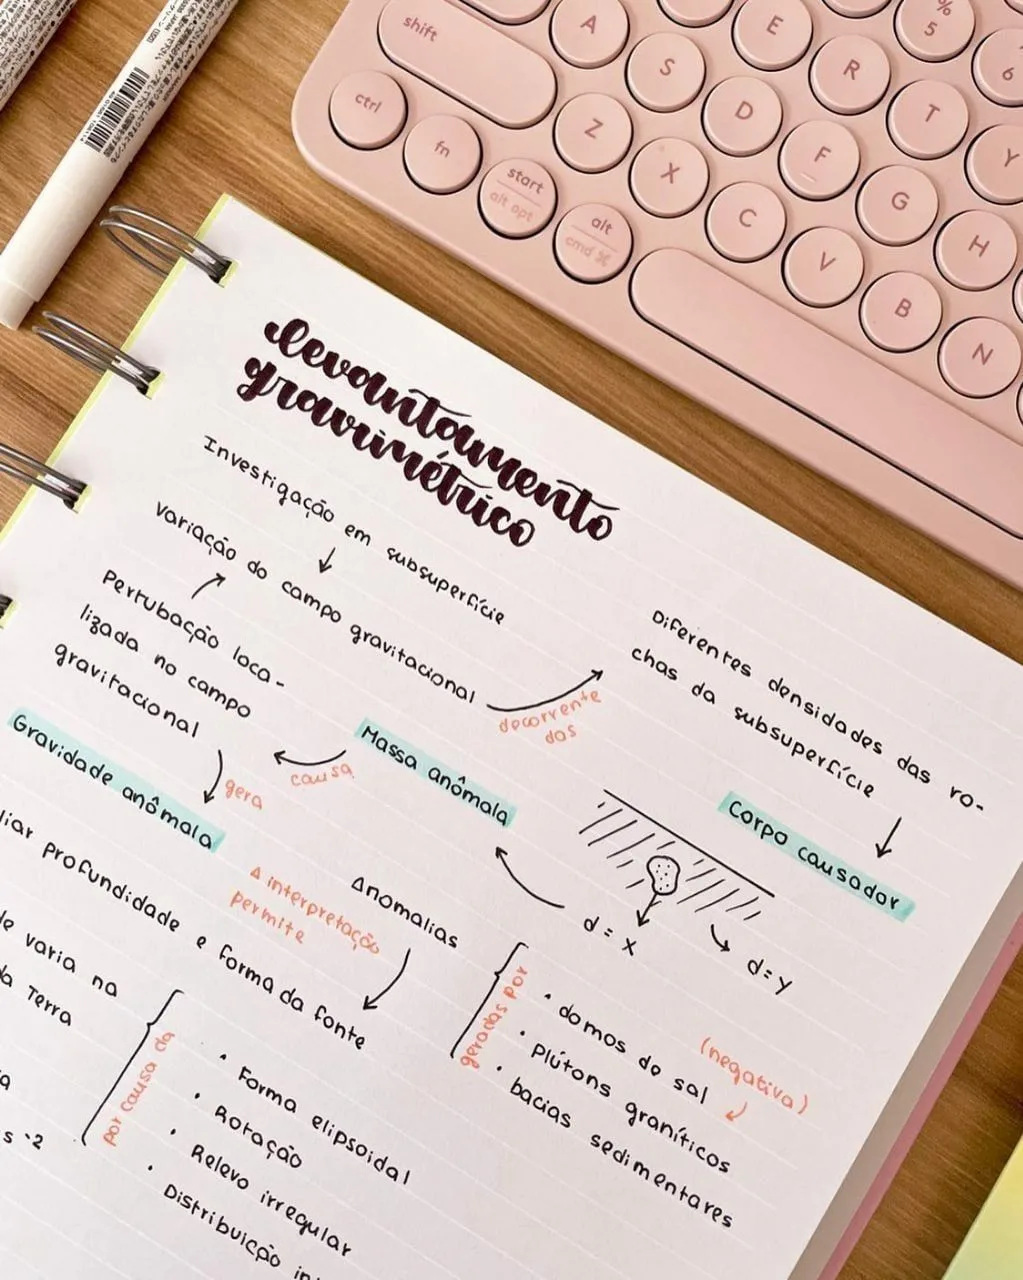 levantamento
gravimétrico
Investigação em subsuperfície
Variação do campo gravitacional
decorrente
das
Diferentes densidades das ro-
chas da subsuperfície
Pertubação loca-
lizada no campo
gravitacional
causa
Massa anômala
gera
Gravidade anômala
Corpo causador
d = x
d = y
Δ interpretação
permite
Anomalias
liar profundidade e forma da fonte
geradas por
• domos de sal
(negativa)
• Plútons graníticos
• bacias sedimentares
de varia na
da Terra
s -2
por causa da
• Forma elipsoidal
• Rotação
• Relevo irregular
• Distribuição
shift
A
E
%
5
6
S
R
T
ctrl
Z
D
F
Y
fn
X
G
start
alt opt
C
H
alt
cmd ⌘
V
B
N